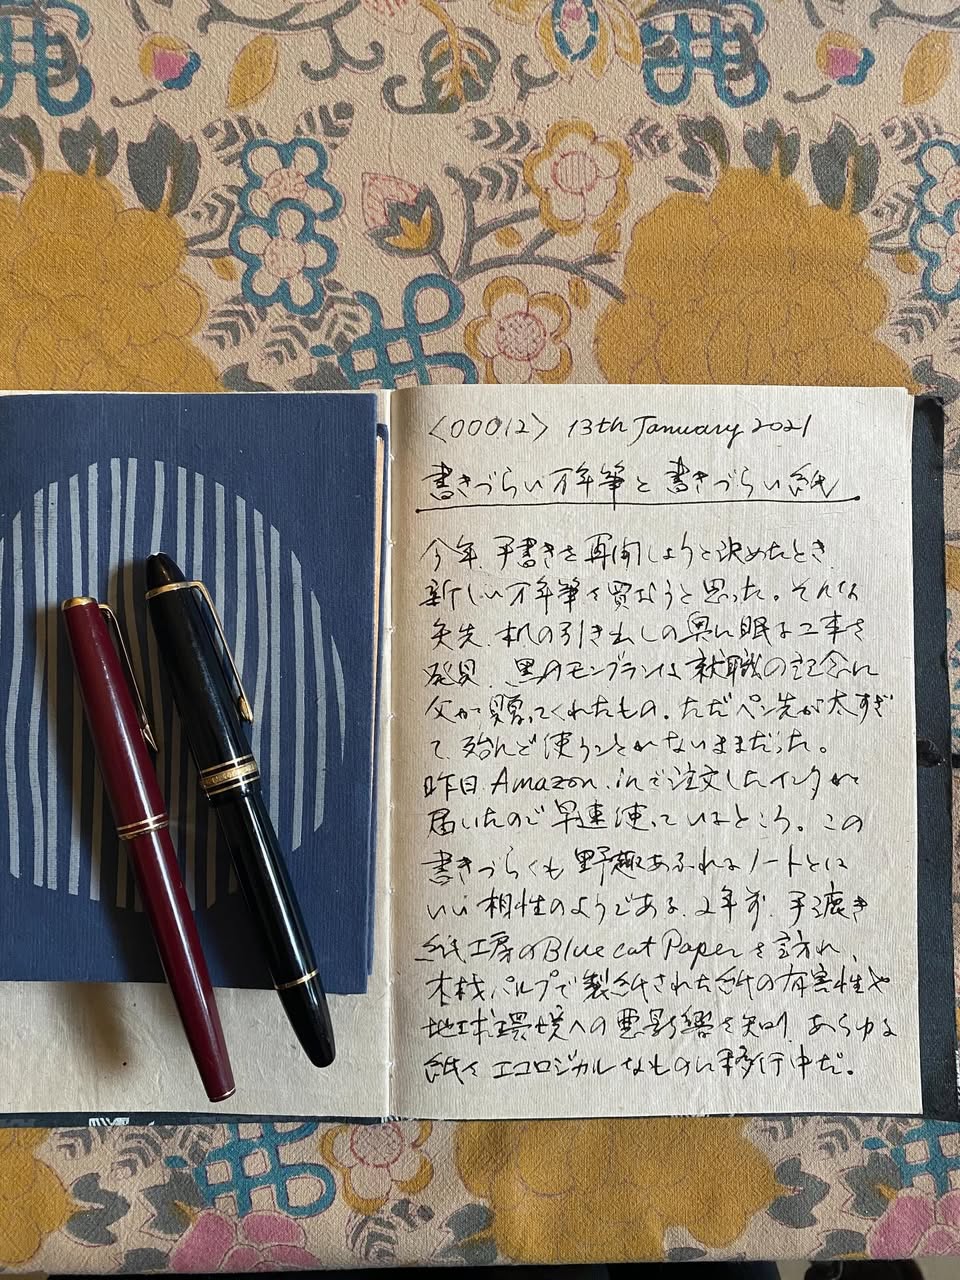 <00012> 13th January 2021
書きづらい万年筆と書きづらい紙
今年、手書きを再開しようと決めたとき
新しい万年筆を買おうと思った。そんな
矢先、机の引き出しの奥に眠る2本を
発見。黒のモンブランは就職の記念に
父が買ってくれたもの。ただペン先が太すぎ
て、殆んど使うことがないままだった。
昨日 Amazon.inで注文したインクが
届いたので早速使っているところ。この
書きづらくも野趣あふれるノートとは
いい相性のようである。2年前、手漉き
紙工房のBlue cat Paperを訪れ、
木材パルプで製紙された紙の有害性や
地球環境への悪影響を知り、あらゆる
紙をエコロジカルなものに移行中だ。